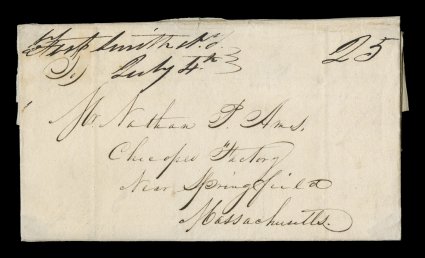 Fort Smith A.T. 25
July 4th
Mr. Nathan P. Ams.
Chicopee Factory
Near Springfield
Massachusetts.